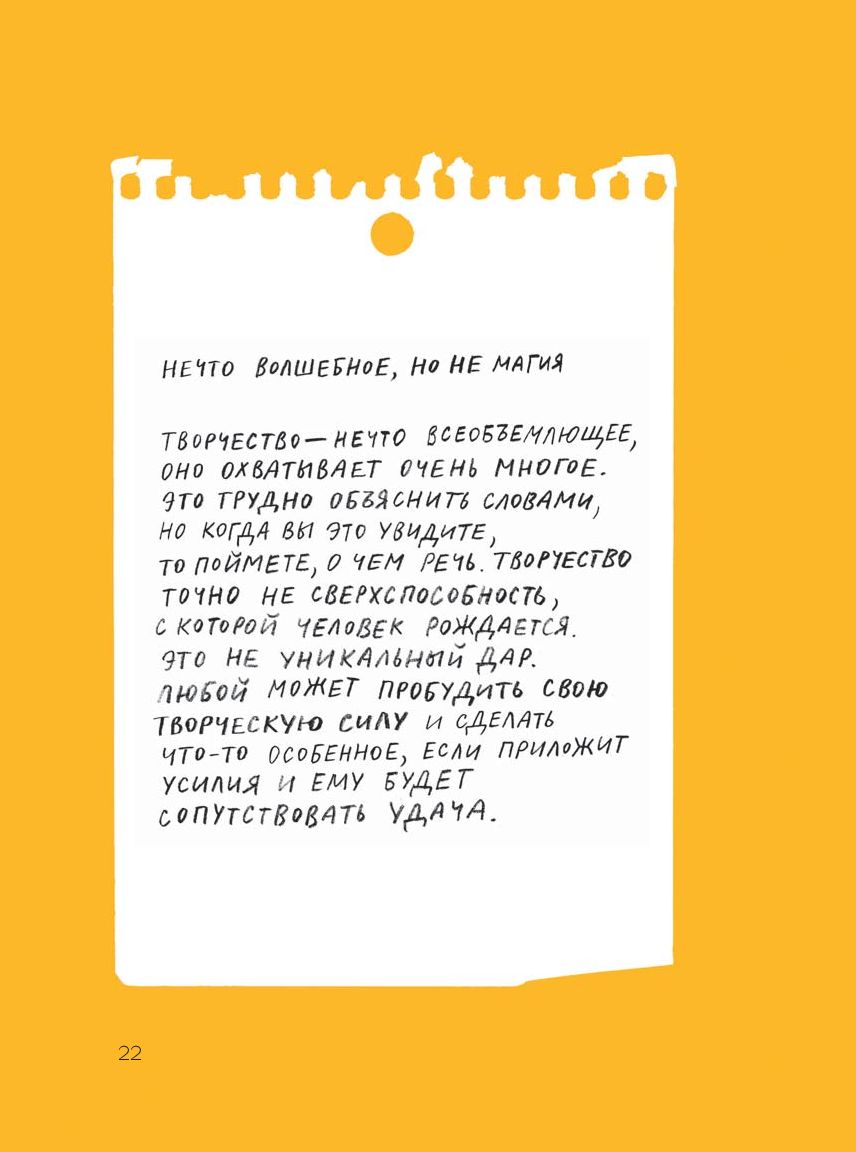 НЕЧТО ВОЛШЕБНОЕ, НО НЕ МАГИЯ
ТВОРЧЕСТВО — НЕЧТО ВСЕОБЪЕМЛЮЩЕЕ,
ОНО ОХВАТЫВАЕТ ОЧЕНЬ МНОГОЕ.
ЭТО ТРУДНО ОБЪЯСНИТЬ СЛОВАМИ,
НО КОГДА ВЫ ЭТО УВИДИТЕ,
ТО ПОЙМЕТЕ, О ЧЕМ РЕЧЬ. ТВОРЧЕСТВО
ТОЧНО НЕ СВЕРХСПОСОБНОСТЬ,
С КОТОРОЙ ЧЕЛОВЕК РОЖДАЕТСЯ.
ЭТО НЕ УНИКАЛЬНЫЙ ДАР.
ЛЮБОЙ МОЖЕТ ПРОБУДИТЬ СВОЮ
ТВОРЧЕСКУЮ СИЛУ И СДЕЛАТЬ
ЧТО-ТО ОСОБЕННОЕ, ЕСЛИ ПРИЛОЖИТ
УСИЛИЯ И ЕМУ БУДЕТ
СОПУТСТВОВАТЬ УДАЧА.
22